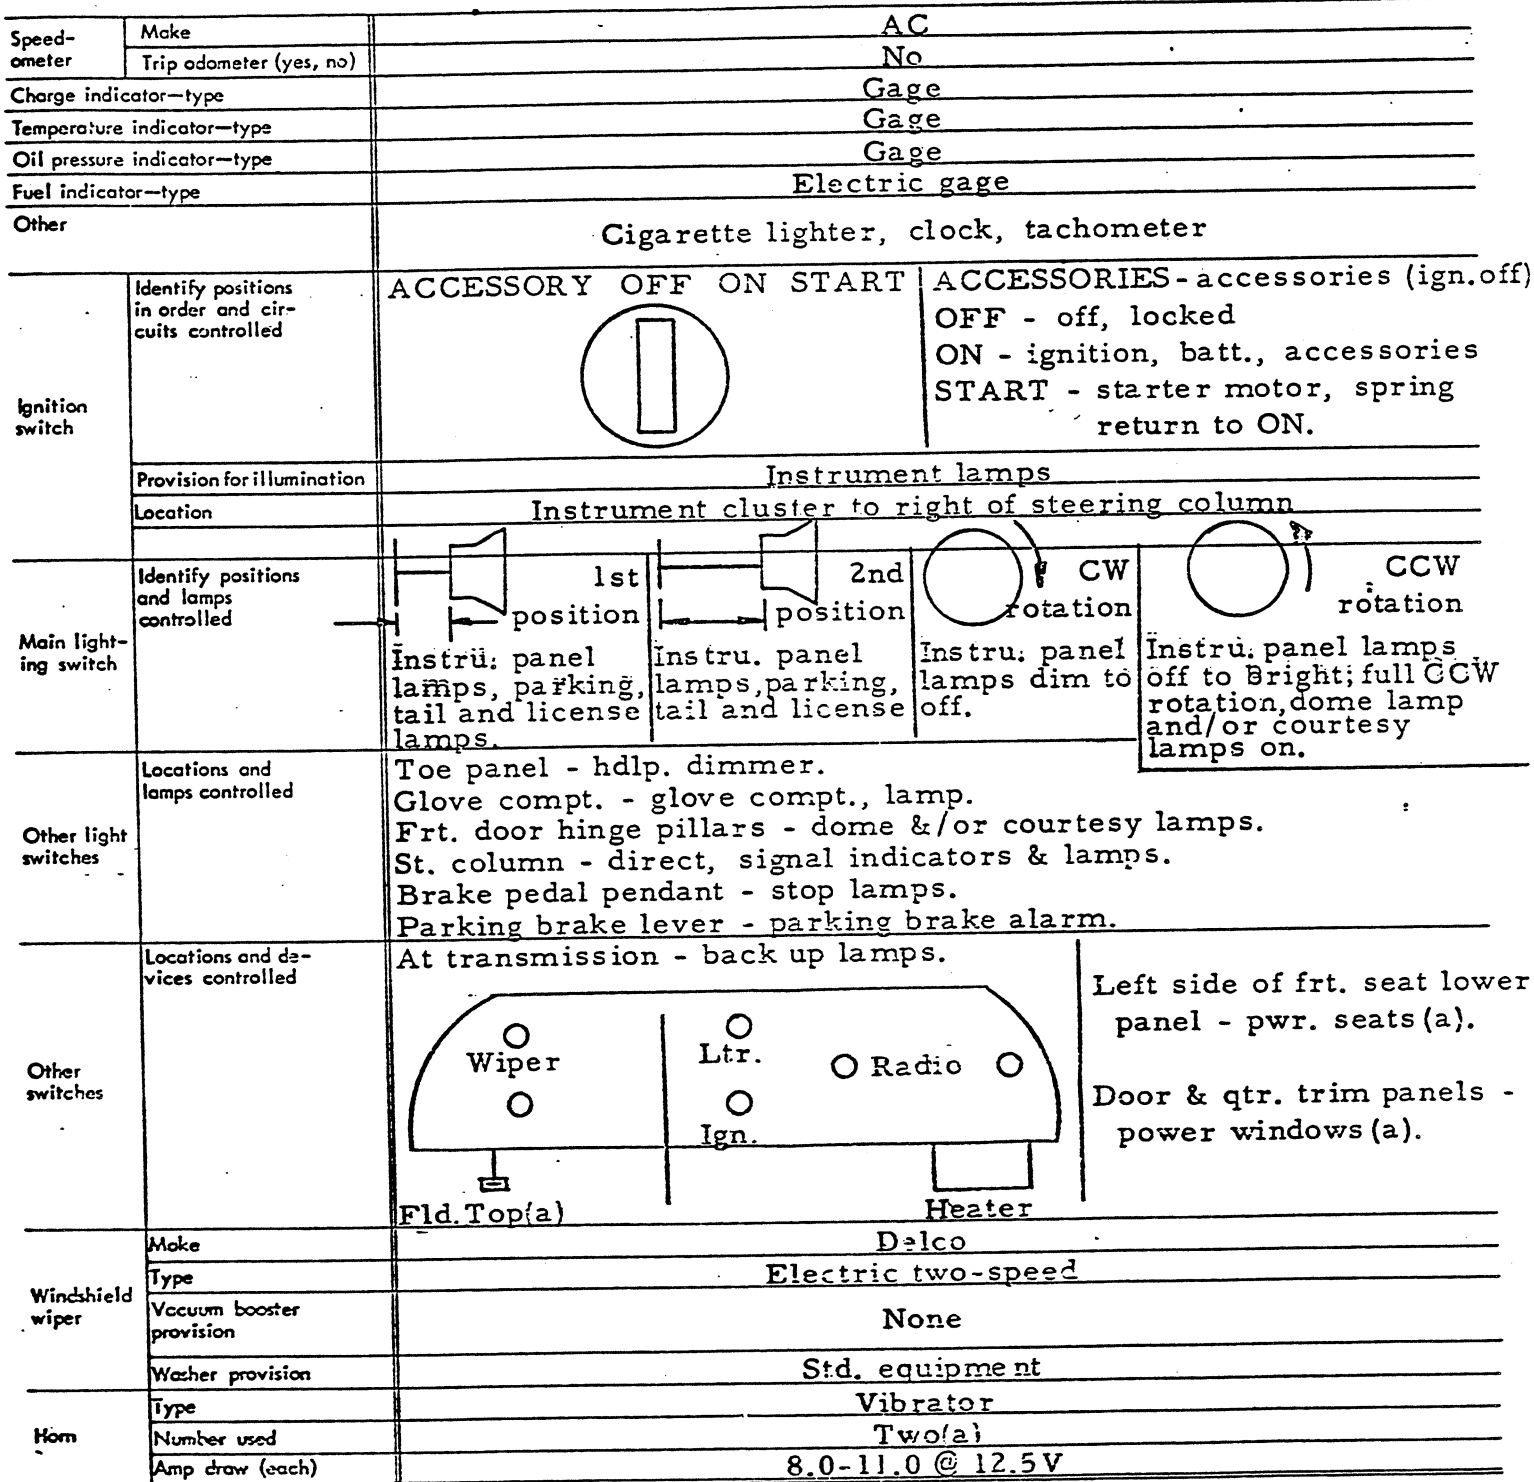 Speed-
ometer
Make
AC
Trip odometer (yes, no)
No
Charge indicator—type
Gage
Temperature indicator—type
Gage
Oil pressure indicator—type
Gage
Fuel indicator—type
Electric gage
Other
Cigarette lighter, clock, tachometer
Ignition
switch
Identify positions
in order and cir-
cuits controlled
ACCESSORY OFF ON START
ACCESSORIES - accessories (ign.off)
OFF - off, locked
ON - ignition, batt., accessories
START - starter motor, spring
return to ON.
Provision for illumination
Instrument lamps
Location
Instrument cluster to right of steering column
Main light-
ing switch
Identify positions
and lamps
controlled
1st
position
Instru. panel
lamps, parking,
tail and license
lamps.
2nd
position
Instru. panel
lamps, parking,
tail and license
CW
rotation
Instru. panel
lamps dim to
off.
CCW
rotation
Instru. panel lamps
off to Bright; full CCW
rotation, dome lamp
and/or courtesy
lamps on.
Other light
switches
Locations and
lamps controlled
Toe panel - hdlp. dimmer.
Glove compt. - glove compt., lamp.
Frt. door hinge pillars - dome &/or courtesy lamps.
St. column - direct, signal indicators & lamps.
Brake pedal pendant - stop lamps.
Parking brake lever - parking brake alarm.
Other
switches
Locations and de-
vices controlled
At transmission - back up lamps.
Wiper
Ltr.
Radio
Ign.
Fld. Top(a)
Heater
Left side of frt. seat lower
panel - pwr. seats (a).
Door & qtr. trim panels -
power windows (a).
Windshield
wiper
Make
Delco
Type
Electric two-speed
Vacuum booster
provision
None
Washer provision
Std. equipment
Horn
Type
Vibrator
Number used
Two(a)
Amp draw (each)
8.0-11.0 @ 12.5V